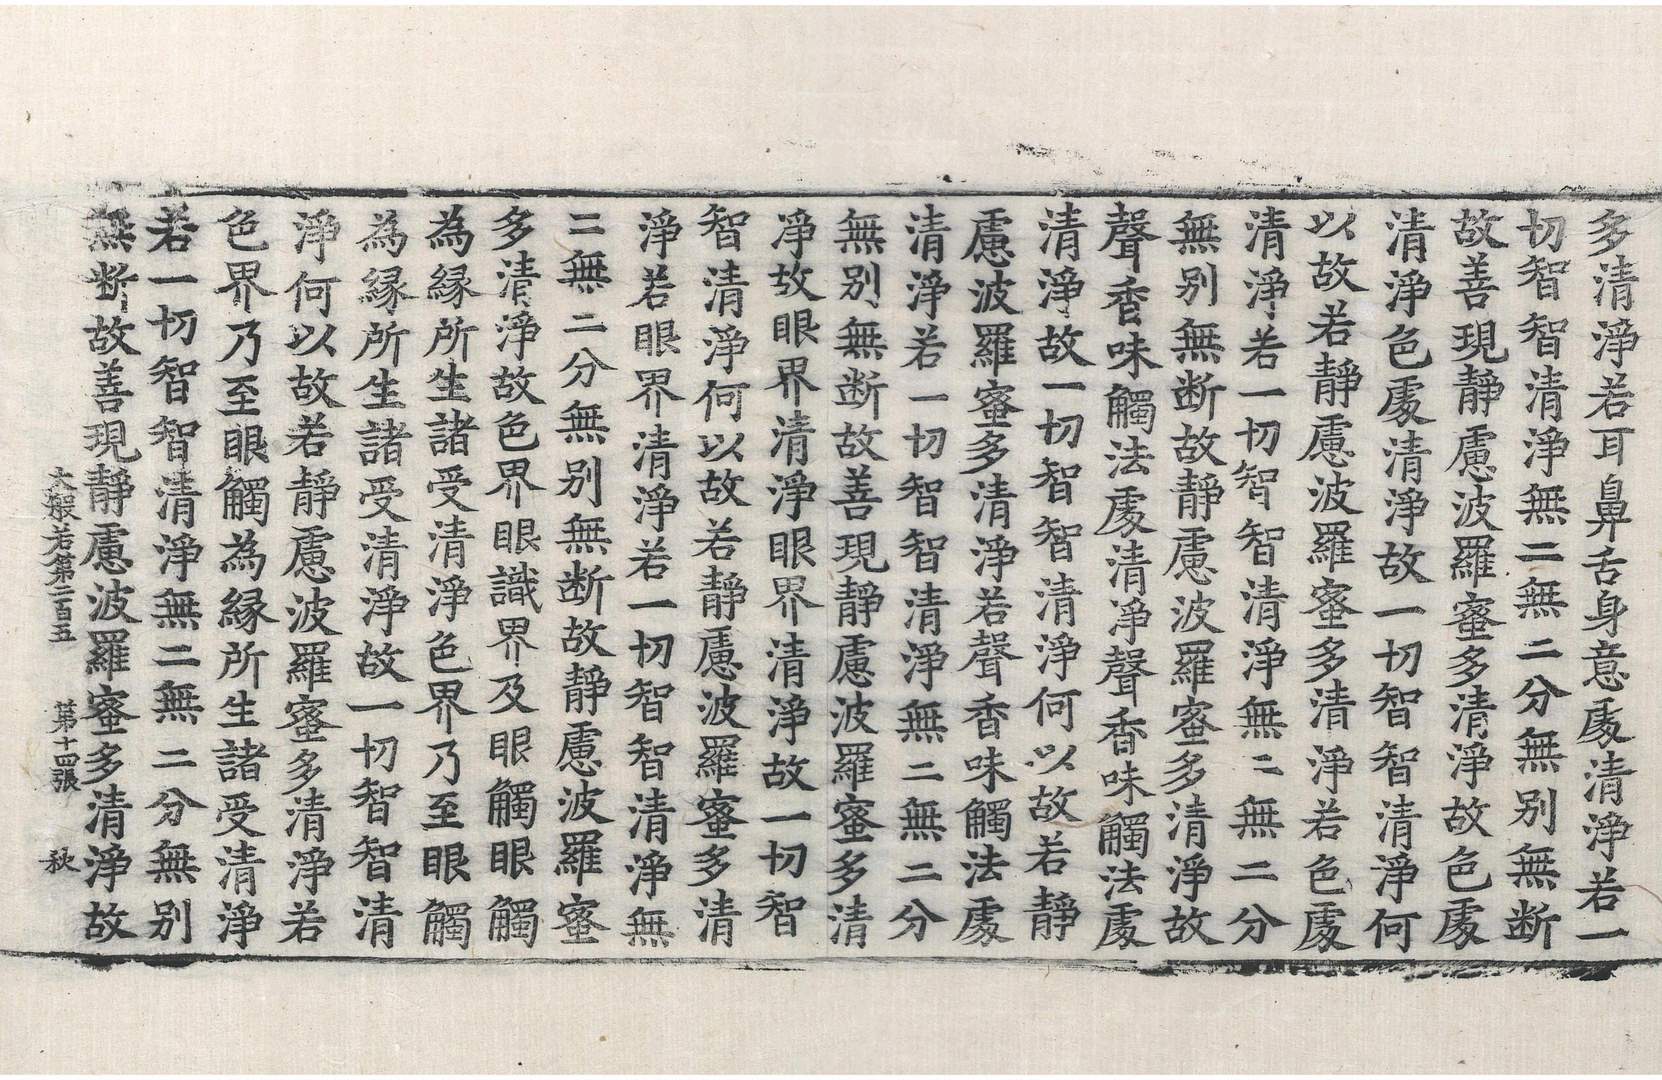 多清淨若耳鼻舌身意處清淨若一
切智智清淨無二無二分無別無断
故善現靜慮波羅蜜多清淨故色處
清淨色處清淨故一切智智清淨何
以故若靜慮波羅蜜多清淨若色處
清淨若一切智智清淨無二無二分
無別無断故靜慮波羅蜜多清淨故
聲香味觸法處清淨聲香味觸法處
清淨故一切智智清淨何以故若靜
慮波羅蜜多清淨若聲香味觸法處
清淨若一切智智清淨無二無二分
無別無断故善現靜慮波羅蜜多清
淨故眼界清淨眼界清淨故一切智
智清淨何以故若靜慮波羅蜜多清
淨若眼界清淨若一切智智清淨無
二無二分無別無断故靜慮波羅蜜
多清淨故色界眼識界及眼觸眼觸
為緣所生諸受清淨色界乃至眼觸
為緣所生諸受清淨故一切智智清
淨何以故若靜慮波羅蜜多清淨若
色界乃至眼觸為緣所生諸受清淨
若一切智智清淨無二無二分無別
無断故善現靜慮波羅蜜多清淨故
大般若第二百五 第十四張 秋